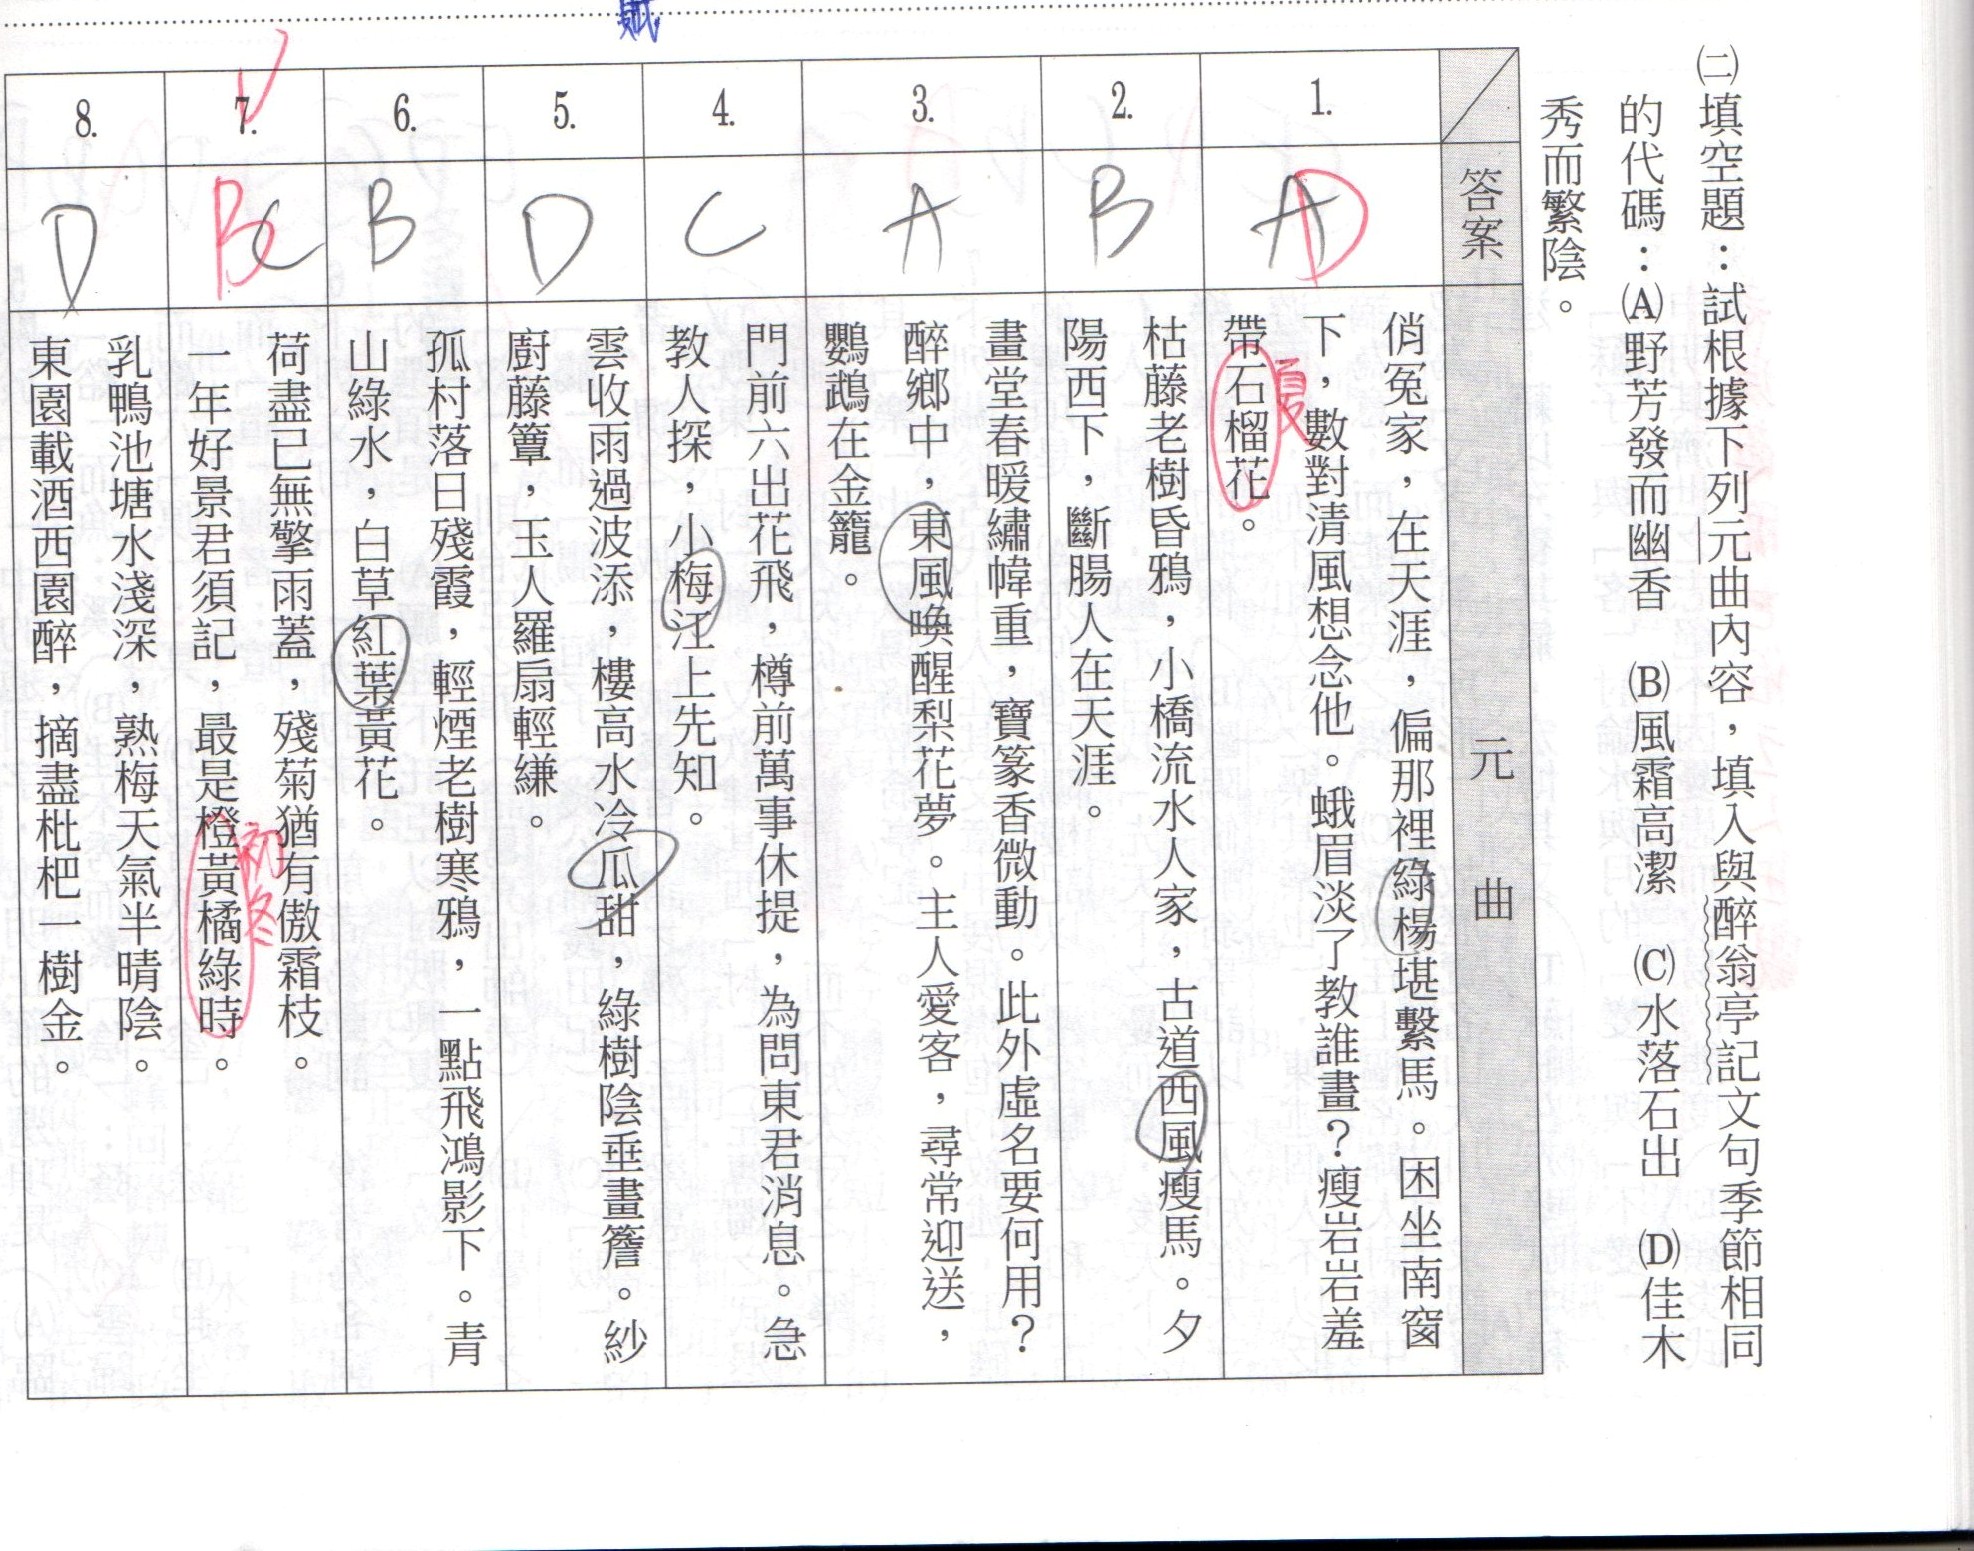 賦
㈡填空題：試根據下列元曲內容，填入與醉翁亭記文句季節相同
的代碼：(A)野芳發而幽香　(B)風霜高潔　(C)水落石出　(D)佳木
秀而繁陰。
答案　元曲
1.
A D
俏冤家，在天涯，偏那裡綠楊堪繫馬。困坐南窗
下，數對清風想念他。蛾眉淡了教誰畫？瘦岩岩羞
帶石榴花。
夏
2.
B
枯藤老樹昏鴉，小橋流水人家，古道西風瘦馬。夕
陽西下，斷腸人在天涯。
3.
A
畫堂春暖繡幃重，寶篆香微動。此外虛名要何用？
醉鄉中，東風喚醒梨花夢。主人愛客，尋常迎送，
鸚鵡在金籠。
4.
C
門前六出花飛，樽前萬事休提，為問東君消息。急
教人探，小梅江上先知。
5.
D
雲收雨過波添，樓高水冷瓜甜，綠樹陰垂畫簷。紗
廚藤簟，玉人羅扇輕縑。
6.
B
孤村落日殘霞，輕煙老樹寒鴉，一點飛鴻影下。青
山綠水，白草紅葉黃花。
7.
B C
荷盡已無擎雨蓋，殘菊猶有傲霜枝。
一年好景君須記，最是橙黃橘綠時。
初冬
8.
D
乳鴨池塘水淺深，熟梅天氣半晴陰。
東園載酒西園醉，摘盡枇杷一樹金。